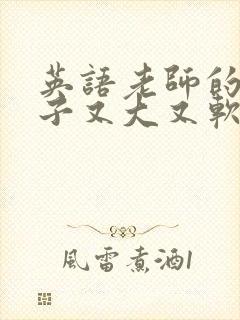 英語老師的
子又大又軟
風雷煮酒1